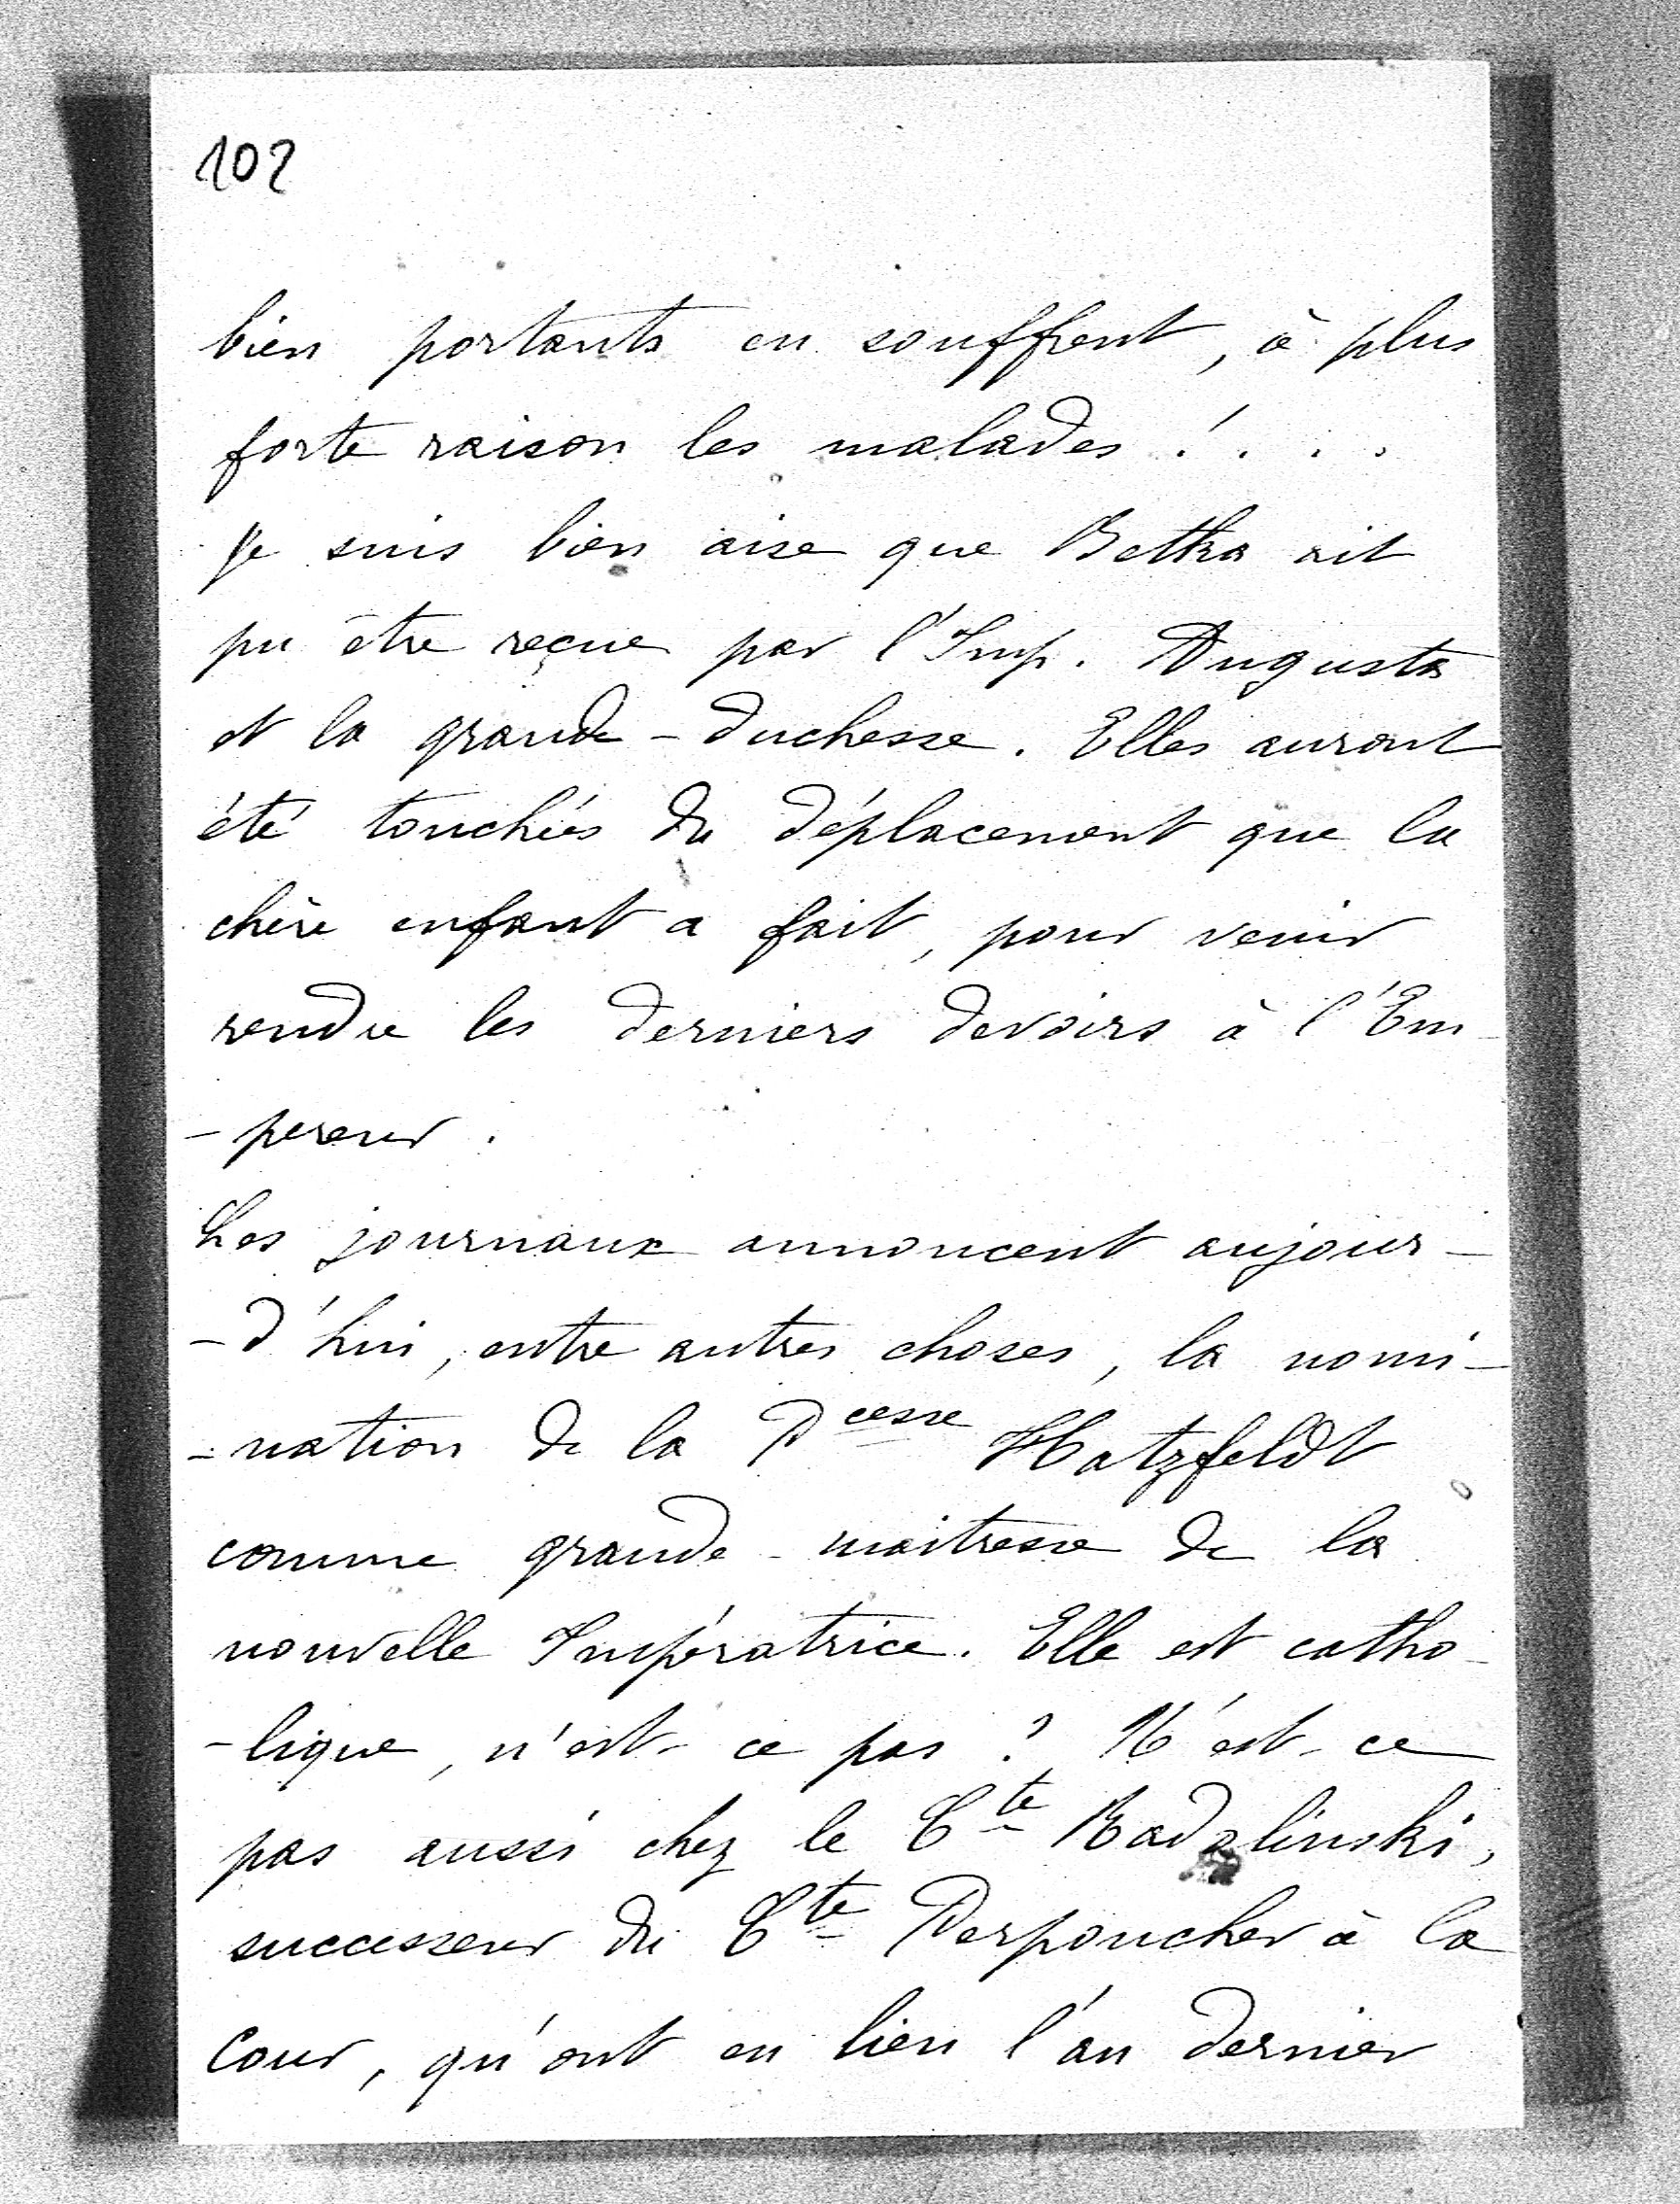 102
bien portants en souffrent, à plus
forte raison les malades ! . . .
Je suis bien aise que Betka ait
pu être reçue par l'Imp. Augusta
et la grande-duchesse. Elles auront
été touchées du déplacement que la
chère enfant a fait, pour venir
rendre les derniers devoirs à l'Em-
-pereur.
Les journaux annoncent aujour-
-d'hui, entre autres choses, la nomi-
-nation de la Pcesse Hatzfeldt
comme grande-maitresse de la
nouvelle Impératrice. Elle est catho-
-lique, n'est-ce pas ? N'est-ce
pas aussi chez le Cte Radolinski,
successeur du Cte Perponcher à la
Cour, qu'ont eu lieu l'an dernier